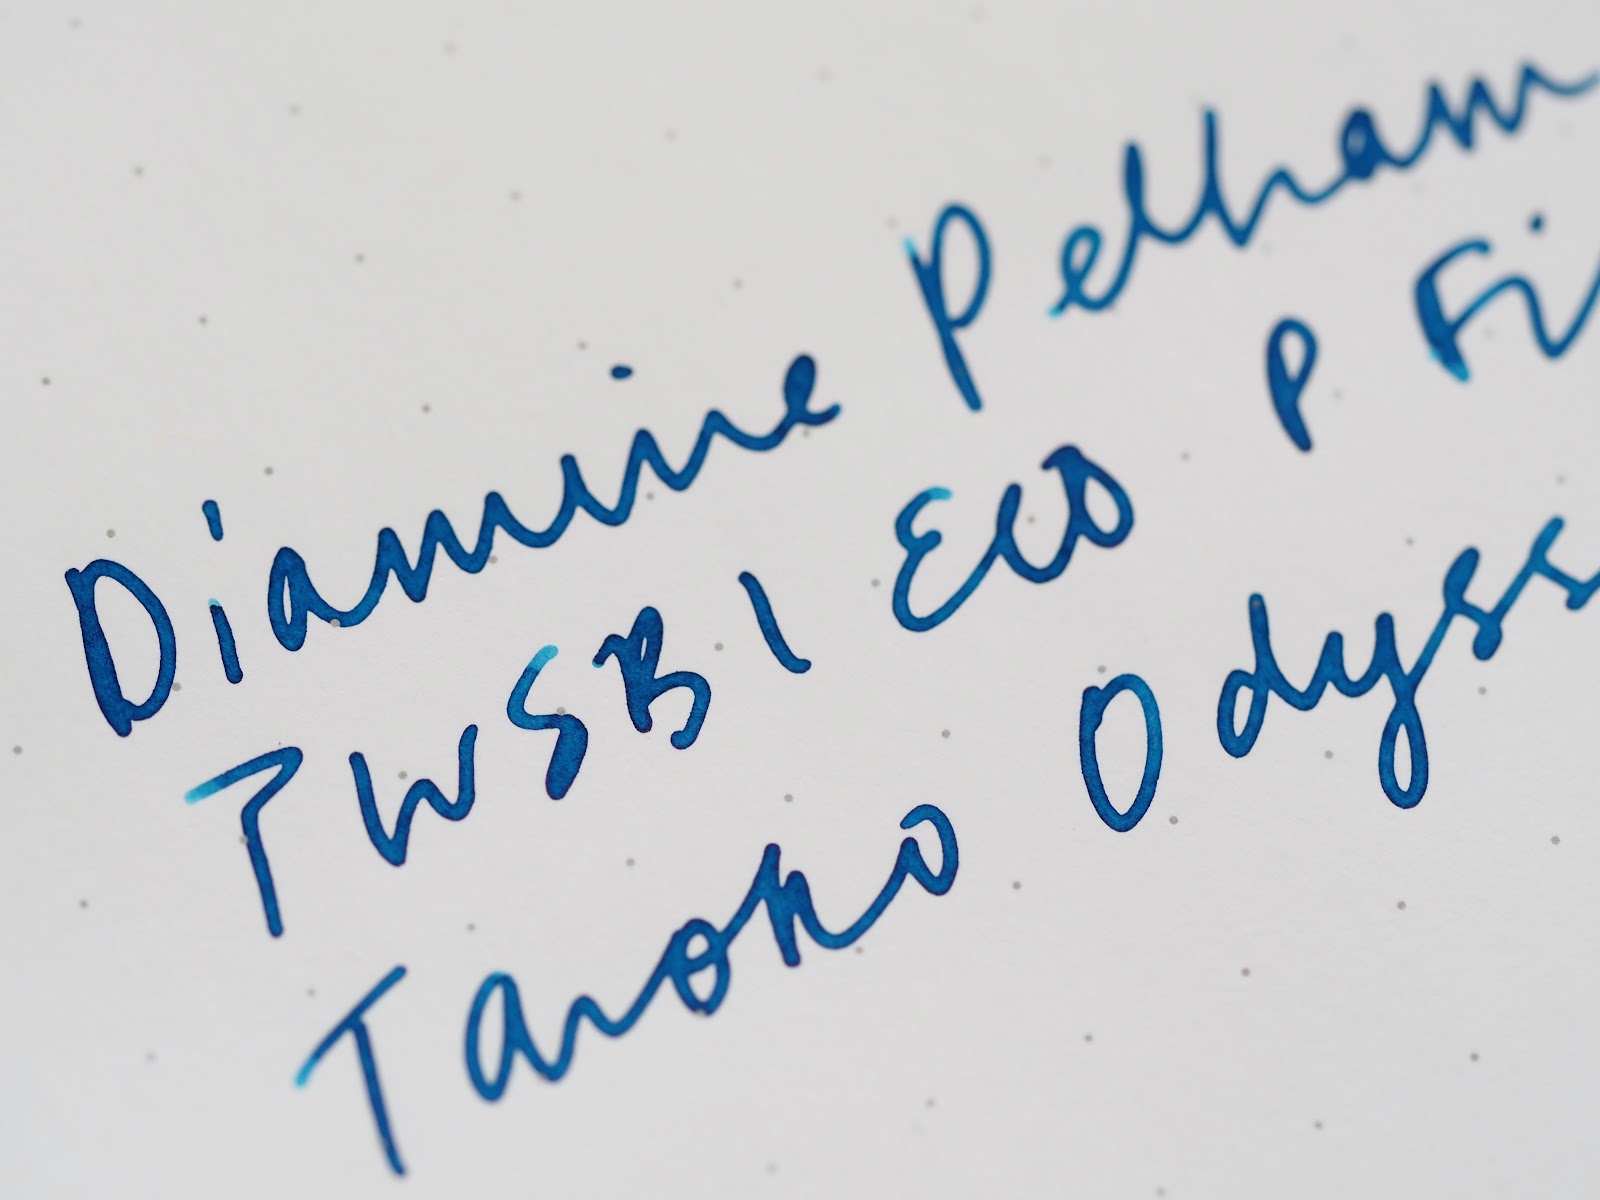 Diamine Pelham
TWSBI Eco P Fi
Taroko Odyss